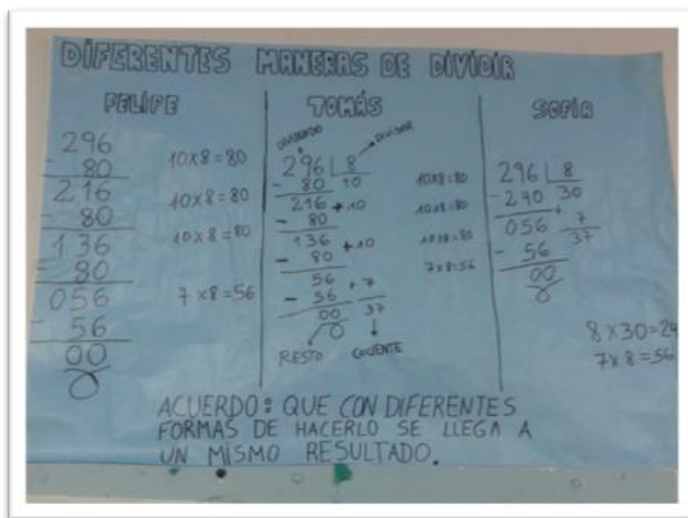 DIFERENTES MANERAS DE DIVIDIR
FELIPE
296
- 80
216
- 80
136
- 80
056
- 56
00
0
10x8=80
10x8=80
10x8=80
7x8=56
TOMÁS
DIVIDENDO
DIVISOR
296 8
- 80 10
216 +10
- 80
136 +10
- 80
56 +7
- 56 37
00
0
RESTO COCIENTE
10x8=80
10x8=80
10x8=80
7x8=56
SOFÍA
296 8
- 240 30
056 + 7
- 56 37
00
0
8x30=24
7x8=56
ACUERDO: QUE CON DIFERENTES
FORMAS DE HACERLO SE LLEGA A
UN MISMO RESULTADO.